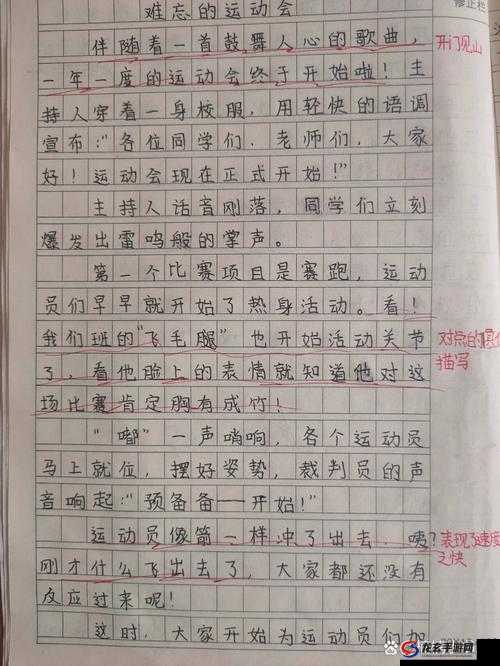 难忘的运动会
修正栏
伴随着一首鼓舞人心的歌曲,
开门见山
一年一度的运动会终于开始啦!主
持人穿着一身校服,用轻快的语调
宣布:“各位同学们、老师们,大家
好!运动会现在正式开始!”
主持人话音刚落,同学们立刻
爆发出雷鸣般的掌声。
第一个比赛项目是赛跑,运动
员们早早就开始了热身活动。看!
我们班的“飞毛腿”也开始活动关节
对点的
描写
了,看他脸上的表情就知道他对这
场比赛肯定胸有成竹!
“嘟”一声哨响,各个运动员
马上就位,摆好姿势,裁判员的声
音响起:“预备备——开始!”
运动员像箭一样冲了出去,咦?
表现了速度
之快
刚才什么飞出去了,大家都还没有
反应过来呢!
这时,大家开始为运动员们加
龙玄手游网